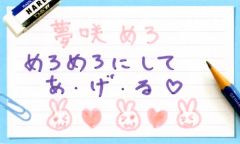 HARD
夢咲 める
めろめろにして
あ・げ・る♡